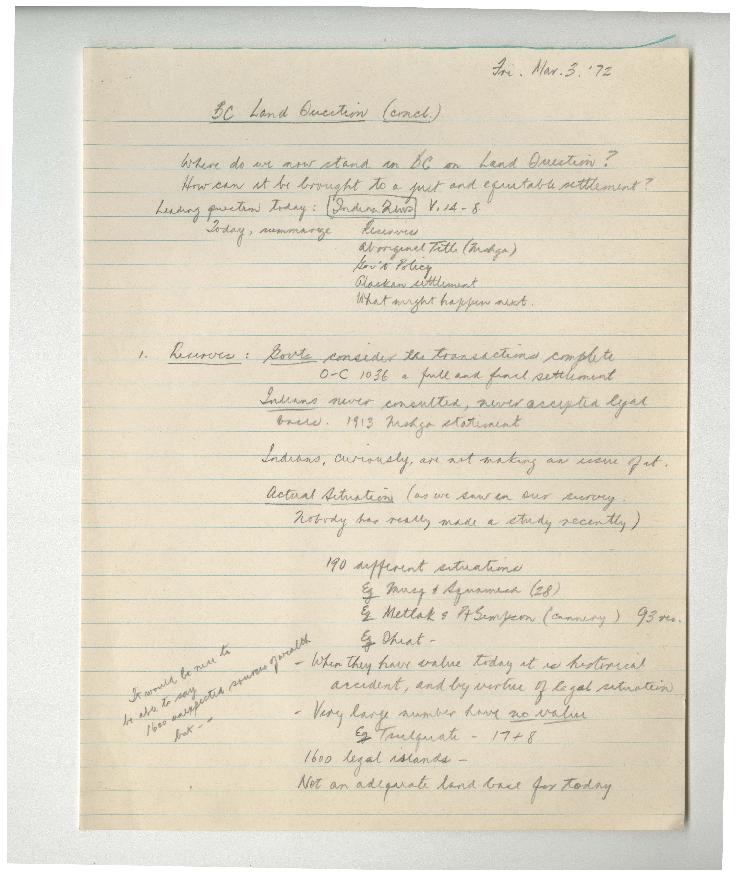 Fri. Mar. 3. '72
BC Land Question (concl.)
Where do we now stand in BC on Land Question?
How can it be brought to a just and equitable settlement?
Leading question today: Indian V. 14-8
Today, summarize Reserves
Aboriginal Title (Nishga)
Gov't Policy
Alaskan settlement
What might happen next.
1. Reserves: Govts consider the transactions complete
O-C 1036 a full and final settlement
Indians never consulted, never accepted legal
basis. 1913 Nishga statement
Indians, curiously, are not making an issue of it.
Actual Situation (as we saw in our survey.
Nobody has really made a study recently)
190 different situations
Eg Musq & Squamish (28)
Eg Metlak & Pt Simpson (cannery) 93 res.
Eg Ohiat -
- When they have value today it is historical
accident, and by virtue of legal situation
- Very large number have no value
Eg Tsulquate - 17+8
1600 legal islands -
Not an adequate land base for today
It would be nice to
be able to say
1600 unexpected sources of wealth
but - -